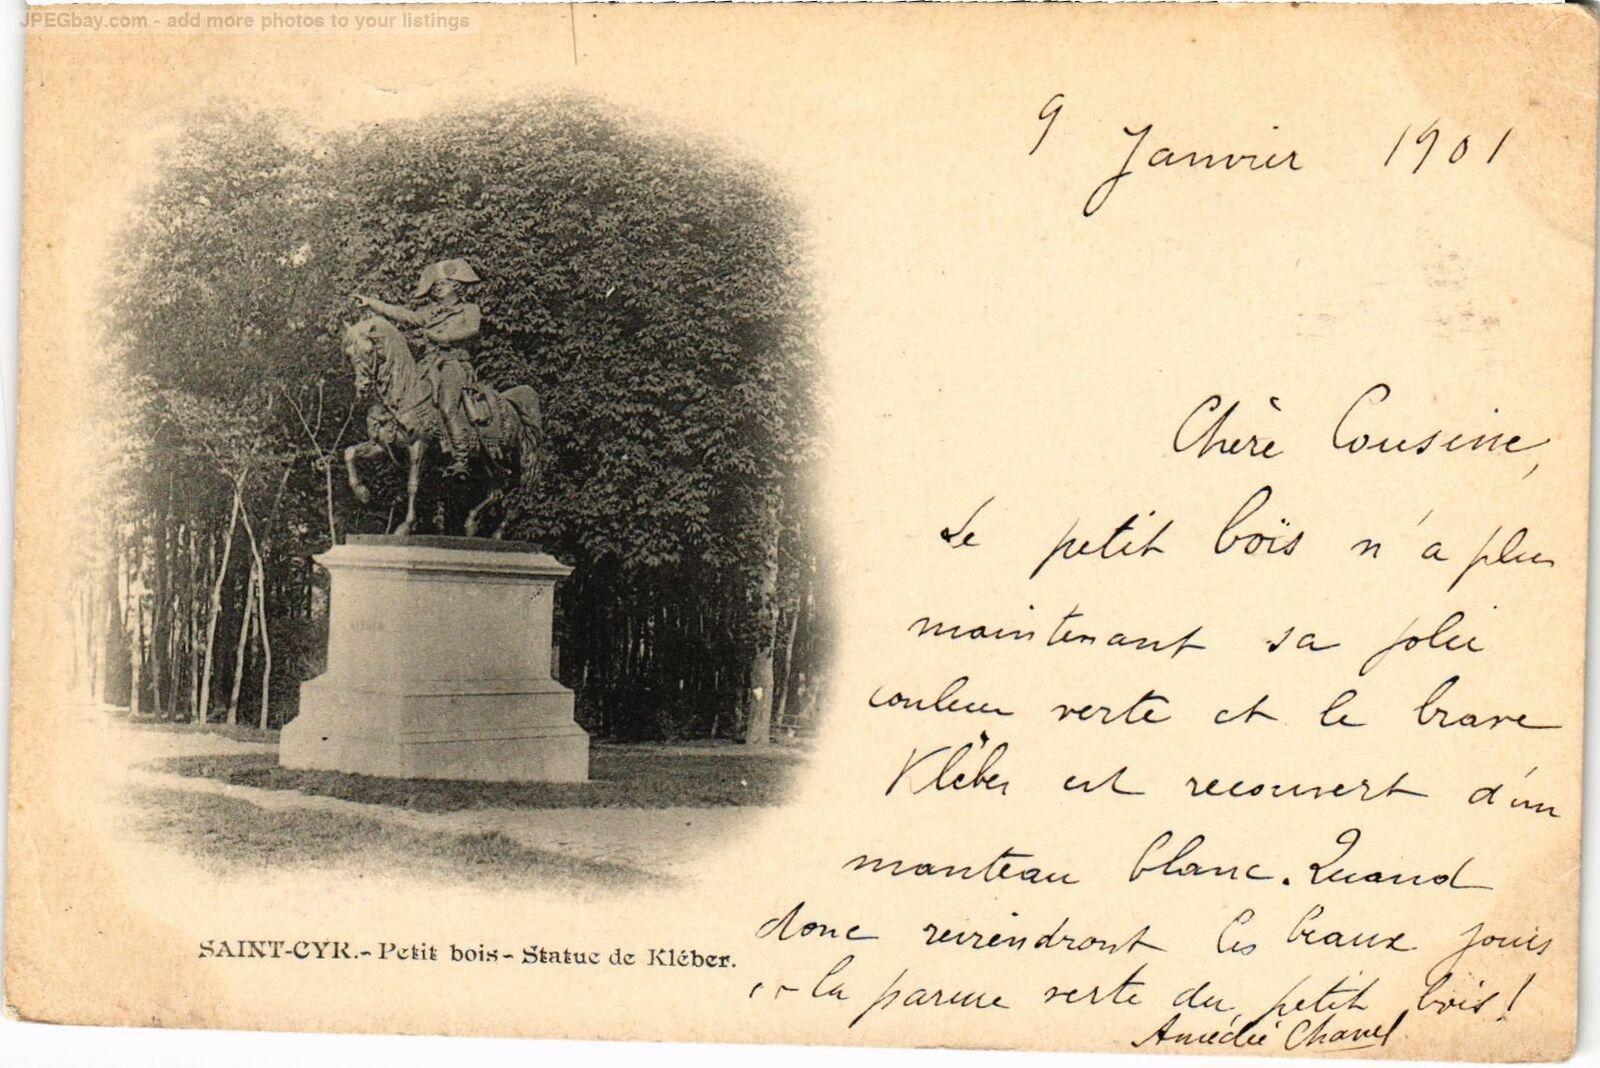 JPEGbay.com - add more photos to your listings
9 Janvier 1901
Chère Cousine,
Le petit bois n'a plus
maintenant sa jolie
couleur verte et le brave
Kléber est recouvert d'un
manteau blanc. Quand
donc reviendront les beaux jours
la parure verte du petit bois!
Amédée Chavel
SAINT-CYR. - Petit bois - Statue de Kléber.